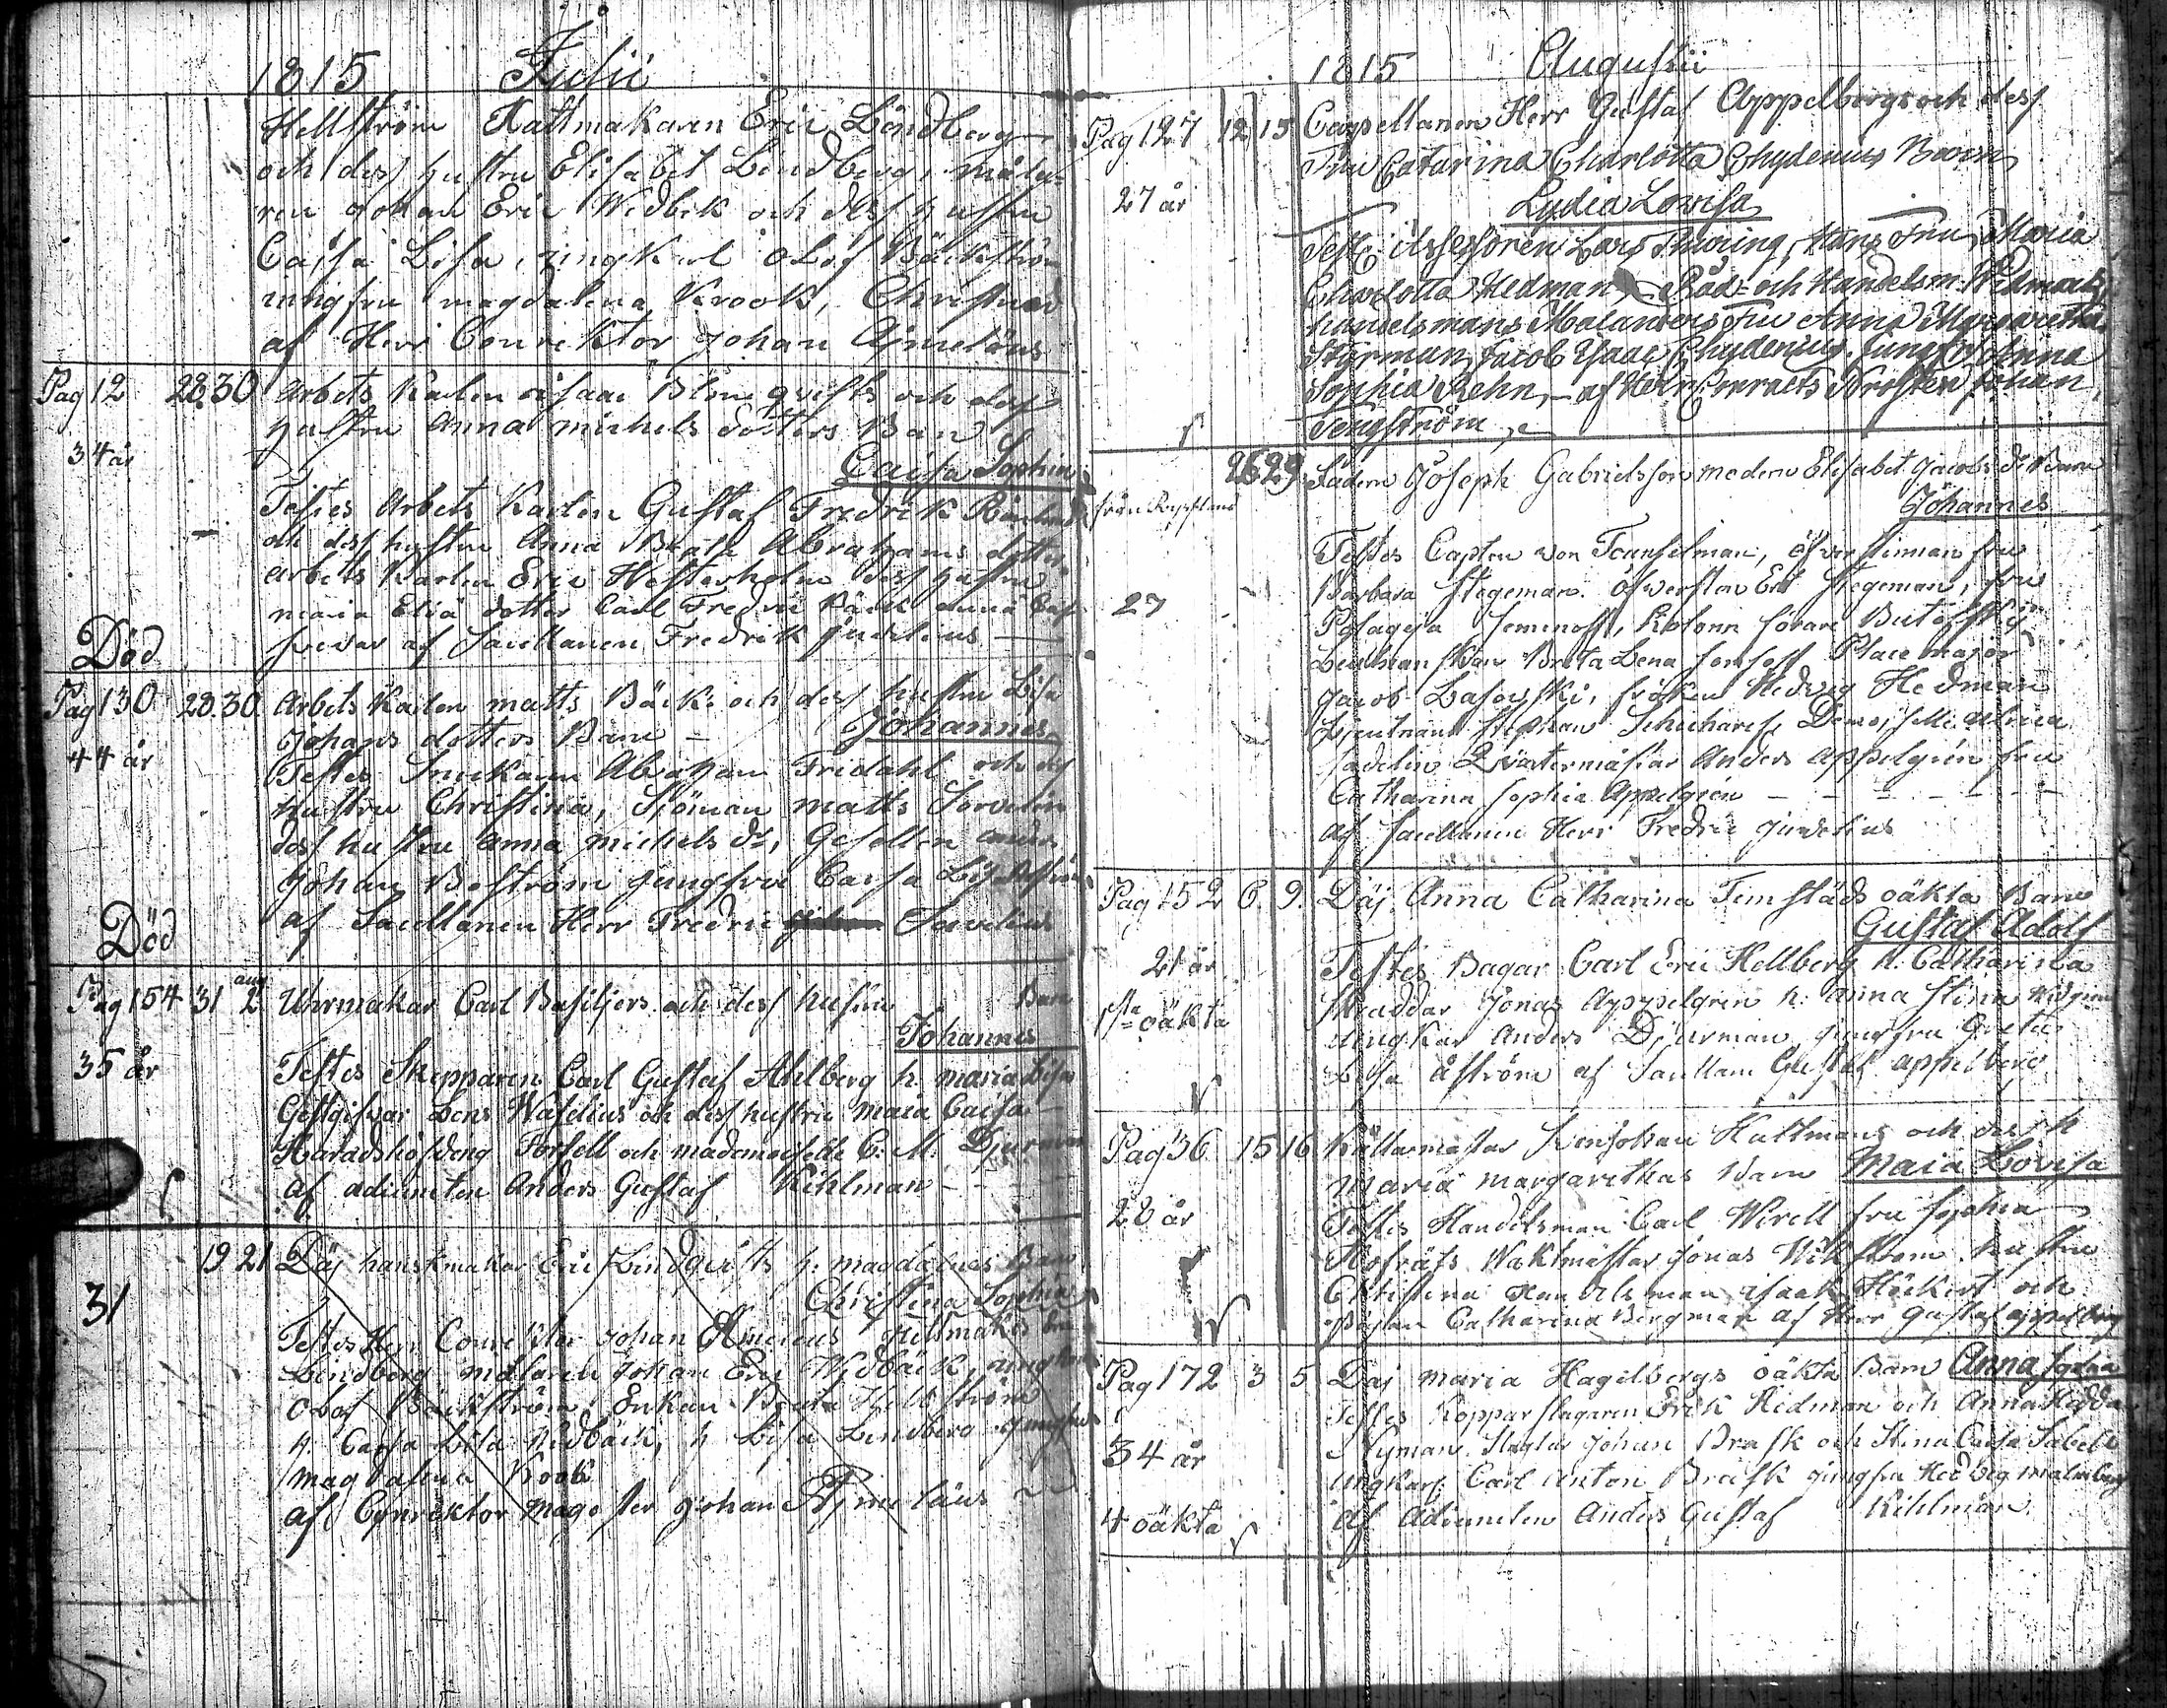 1815 Julii
Hellström Hattmakaren Eric Lindberg
och dess hustru Elisabet Lindberg, måla-
ren Johan Eric Widbek och dess hustru
Caisa Lisa, ungkarl Olof Bäckström
jungfru Magdalena Krook, Christnad
af Herr Conrektor Johan Ajmelæus
Pag 12 28.30 Arbets Karlen Isaac Blomqvists och dess
hustru Anna Michels dotters Barn
34 år
Caisa Sophia
Testes Arbets Karlen Gustaf Fredrik
och dess hustru Anna Brita Abrahams dotter
arbets Karlen Eric Westerholm dess hustru
Maria Eliæ dotter Carl Fredric Bäck Anna
af Sacellanen Fredrik Juvelius
Död
Pag 130 28.30. Arbets Karlen Matts Bäck och dess hustru Lisa
Johans dotters Barn Johannes
44 år
Testes Snickaren Abraham Fridahl och dess
hustru Christina, Sjöman Matts
dess hustru Anna Michels dr, Gesellen
Johan Boström jungfru Caisa Lisa
af Sacellanen Herr Fredric Juvelius
Död
Pag 154 31 aug 2 Uhrmakar Carl Basiljers och dess hustru Barn
Johannes
35 år
Testes Skepparen Carl Gustaf Ahlberg h. Maria Lisa
Gestgifvar Lens Waselius och dess hustru Maia Caisa
Häradshöfding Forsell och mademoiselle C. M. Djurman
af adiuncten Anders Gustaf Kihlman
19 21 Däj hanskmakar Eric Lindqvists h. Magdalenas Barn
Christina Sophia
31
Testes Herr Conrektor Johan Hattmakar
Lindberg målaren Johan Eric Widbäck, ungkarl
Olof Bäckström, Enkan Brita Hellström
h. Caisa Lisa Widbäck, h Lisa Lindberg jungfru
Magdalena Krook
af Conrektor Magister Johan Ajmelæus
1815 Augusti
Pag 127 12 15 Cappellanen Herr Gustaf Appelbergs och dess
Fru Catarina Charlotta Chydenius Barn
27 år
Lydia Lowisa
Test: Assessoren Lars Thuring, hans Fru Maria
Charlotta Hedman, Råd- och Handelsm: Widman
handelsmans Molanders Fru Anna Margaretha
Styrman Jacob Isaac Chydenius, Jungfr Anna
Sophia Rehn, – af Herr Contracts Prosten Johan
Tengström
26 29 Fadern Joseph Gabrielsson modern Elisabet Jacobs dr Barn
från Ryssland
Johannes
Testes Capten von, öfverstinnan fru
Barbara Stegeman. Öfversten Ert Stegeman, fru
27
Pelageja Semenoff, Kolonn förare Butofskij
Brita Lena Place major
Jacob Lasowski, fröken Hedvig Hedman
Lieutnant Stephan Demoiselle Ulrica
Qvartermästar Anders Appelgrén fru
Catharina Sophia Appelgrén
af Sacellanen Herr Fredric Juvelius
Pag 152 6. 9. Däj Anna Catharina oäkta Barn
Gustaf Adolf
21 år
Testes Bagar Carl Eric Hellberg h: Catharina
1sta oäkta
Skräddar Jonas Appelgren h: Anna Stina
ungkar Anders Djurman, jungfru Greta
Lisa Åström af Sacellan Gustaf Appelberg
Pag 36 15 16 Källarmästar Sven Johan Hallmans och dess h
Maria Margarethas Barn Maia Lovisa
28 år
Testes Handelsman Carl Wirell fru Sophia
Hofräts Waktmästar Jonas Wikström hustru
Christina Handelsman Isaak Höckert och
Catharina Bergman af Herr Gustaf Appelberg
Pag 172 3 5 Däj Maria Hagelbergs oäkta Barn Anna
Testes Kopparslagaren Erik Hedman och Anna Hedda
34 år
Nyman Johan Brask och Stina Caisa
ungkarl Carl Anton Brask jungfru Hedvig Malmberg
4 oäkta
af Adiuncten Anders Gustaf Kihlman.